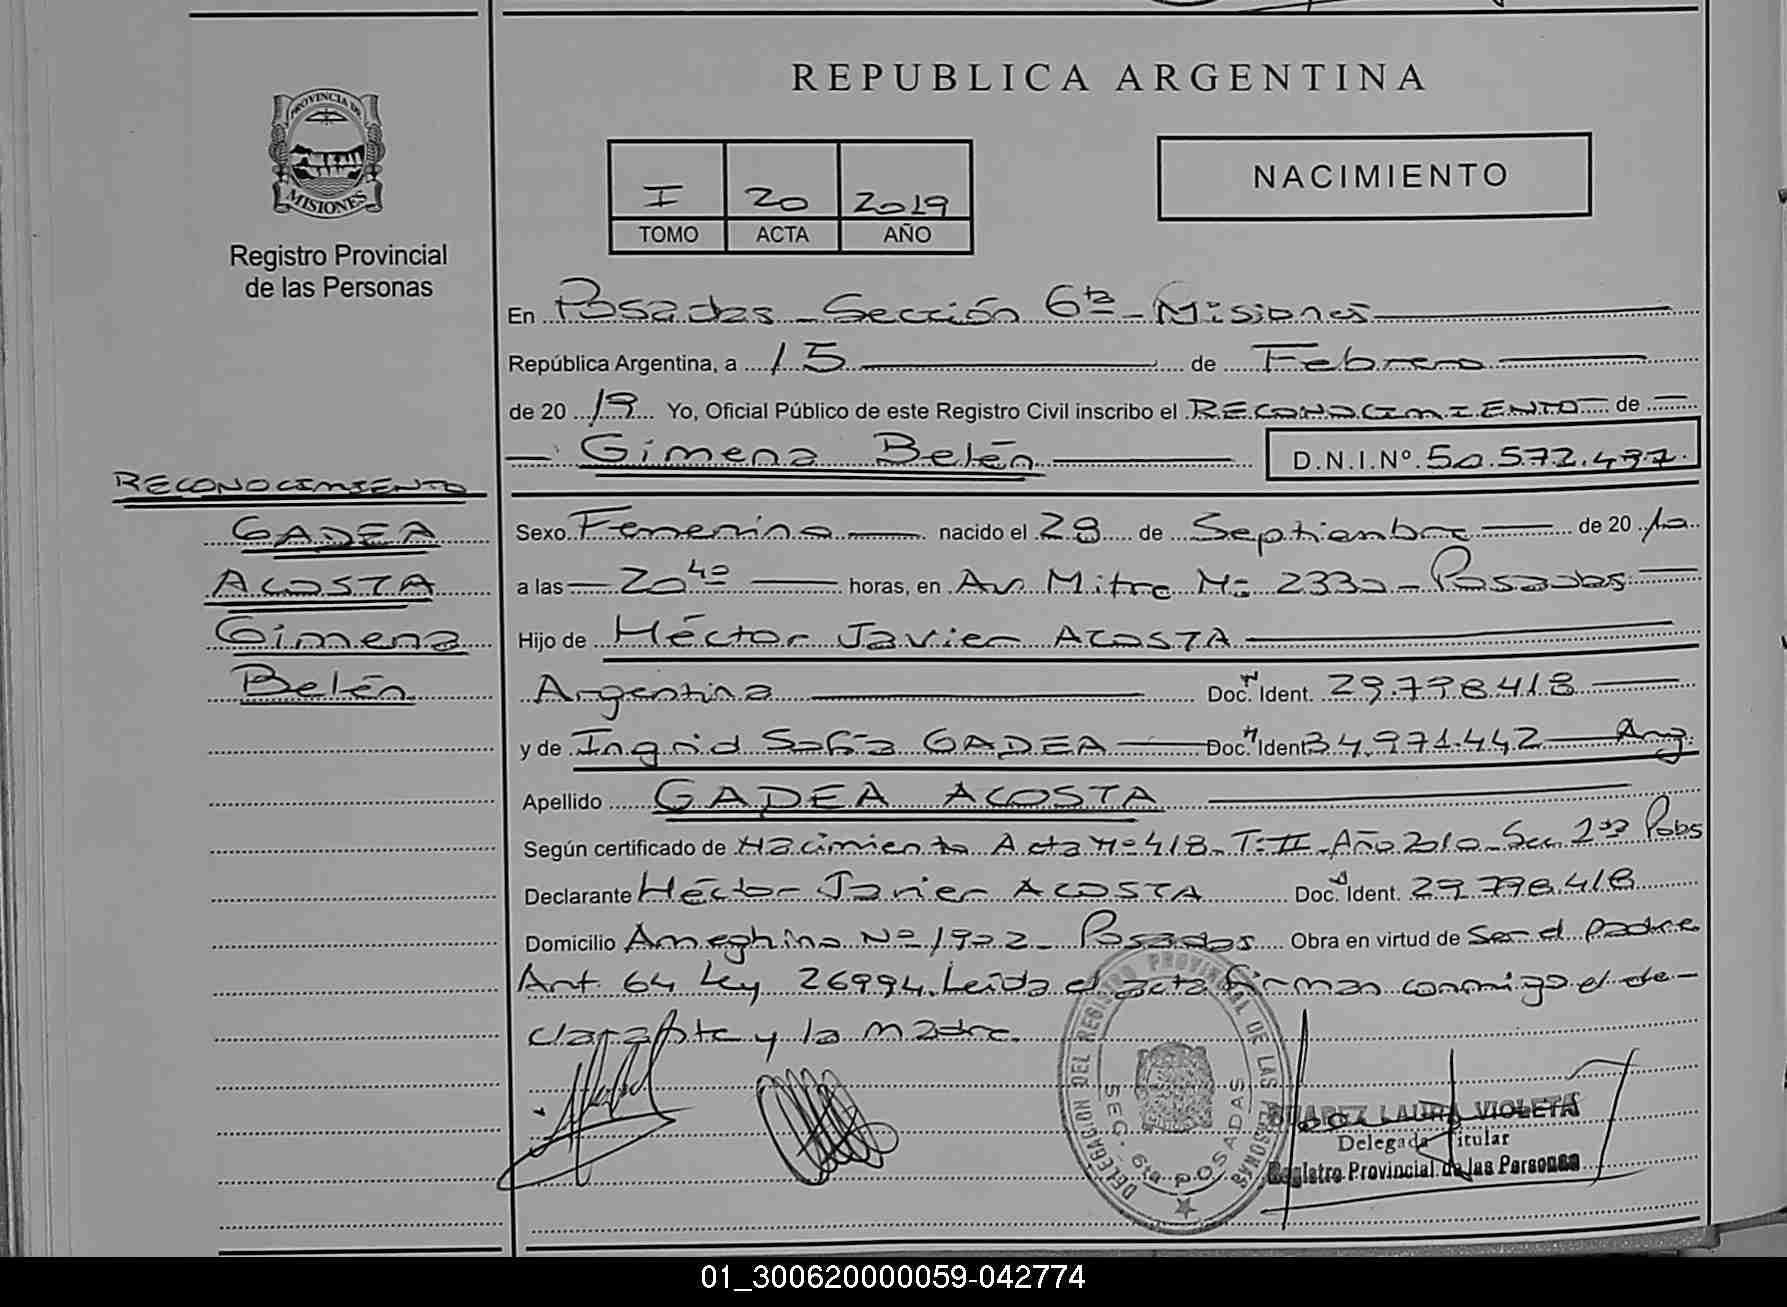 REPUBLICA ARGENTINA
PROVINCIA DE
MISIONES
Registro Provincial
de las Personas
I 20 2019
TOMO ACTA AÑO
NACIMIENTO
En Posadas - Sección 6ta - Misiones
República Argentina, a 15 de Febrero
de 2019 Yo, Oficial Público de este Registro Civil inscribo el RECONOCIMIENTO de
Gimena Belén D.N.I.Nº 50.572.497.
RECONOCIMIENTO
GADEA
ACOSTA
Gimena
Belén
Sexo Femenino nacido el 28 de Septiembre de 2010
a las 20 40 horas, en Av. Mitre Nº 2330 - Posadas
Hijo de Héctor Javier ACOSTA
Argentina Doc. Ident. 29.798.418
y de Ingrid Sofía GADEA Doc. Ident 34.971.442 Arg.
Apellido GADEA ACOSTA
Según certificado de Nacimiento Acta Nº 418 - T: II - Año 2010 - Sec 2da Pdas
Declarante Héctor Javier ACOSTA Doc. Ident. 29.798.418
Domicilio Ameghino Nº 1902 - Posadas Obra en virtud de Ser el padre
Art. 64 Ley 26994. Leída el acta firman conmigo el de-
clarante y la madre.
DELEGACION DEL REGISTRO PROVINCIAL DE LAS PERSONAS
SEC. 6ta POSADAS
SUAREZ LAURA VIOLETA
Delegada Titular
Registro Provincial de las Personas
01_300620000059-042774